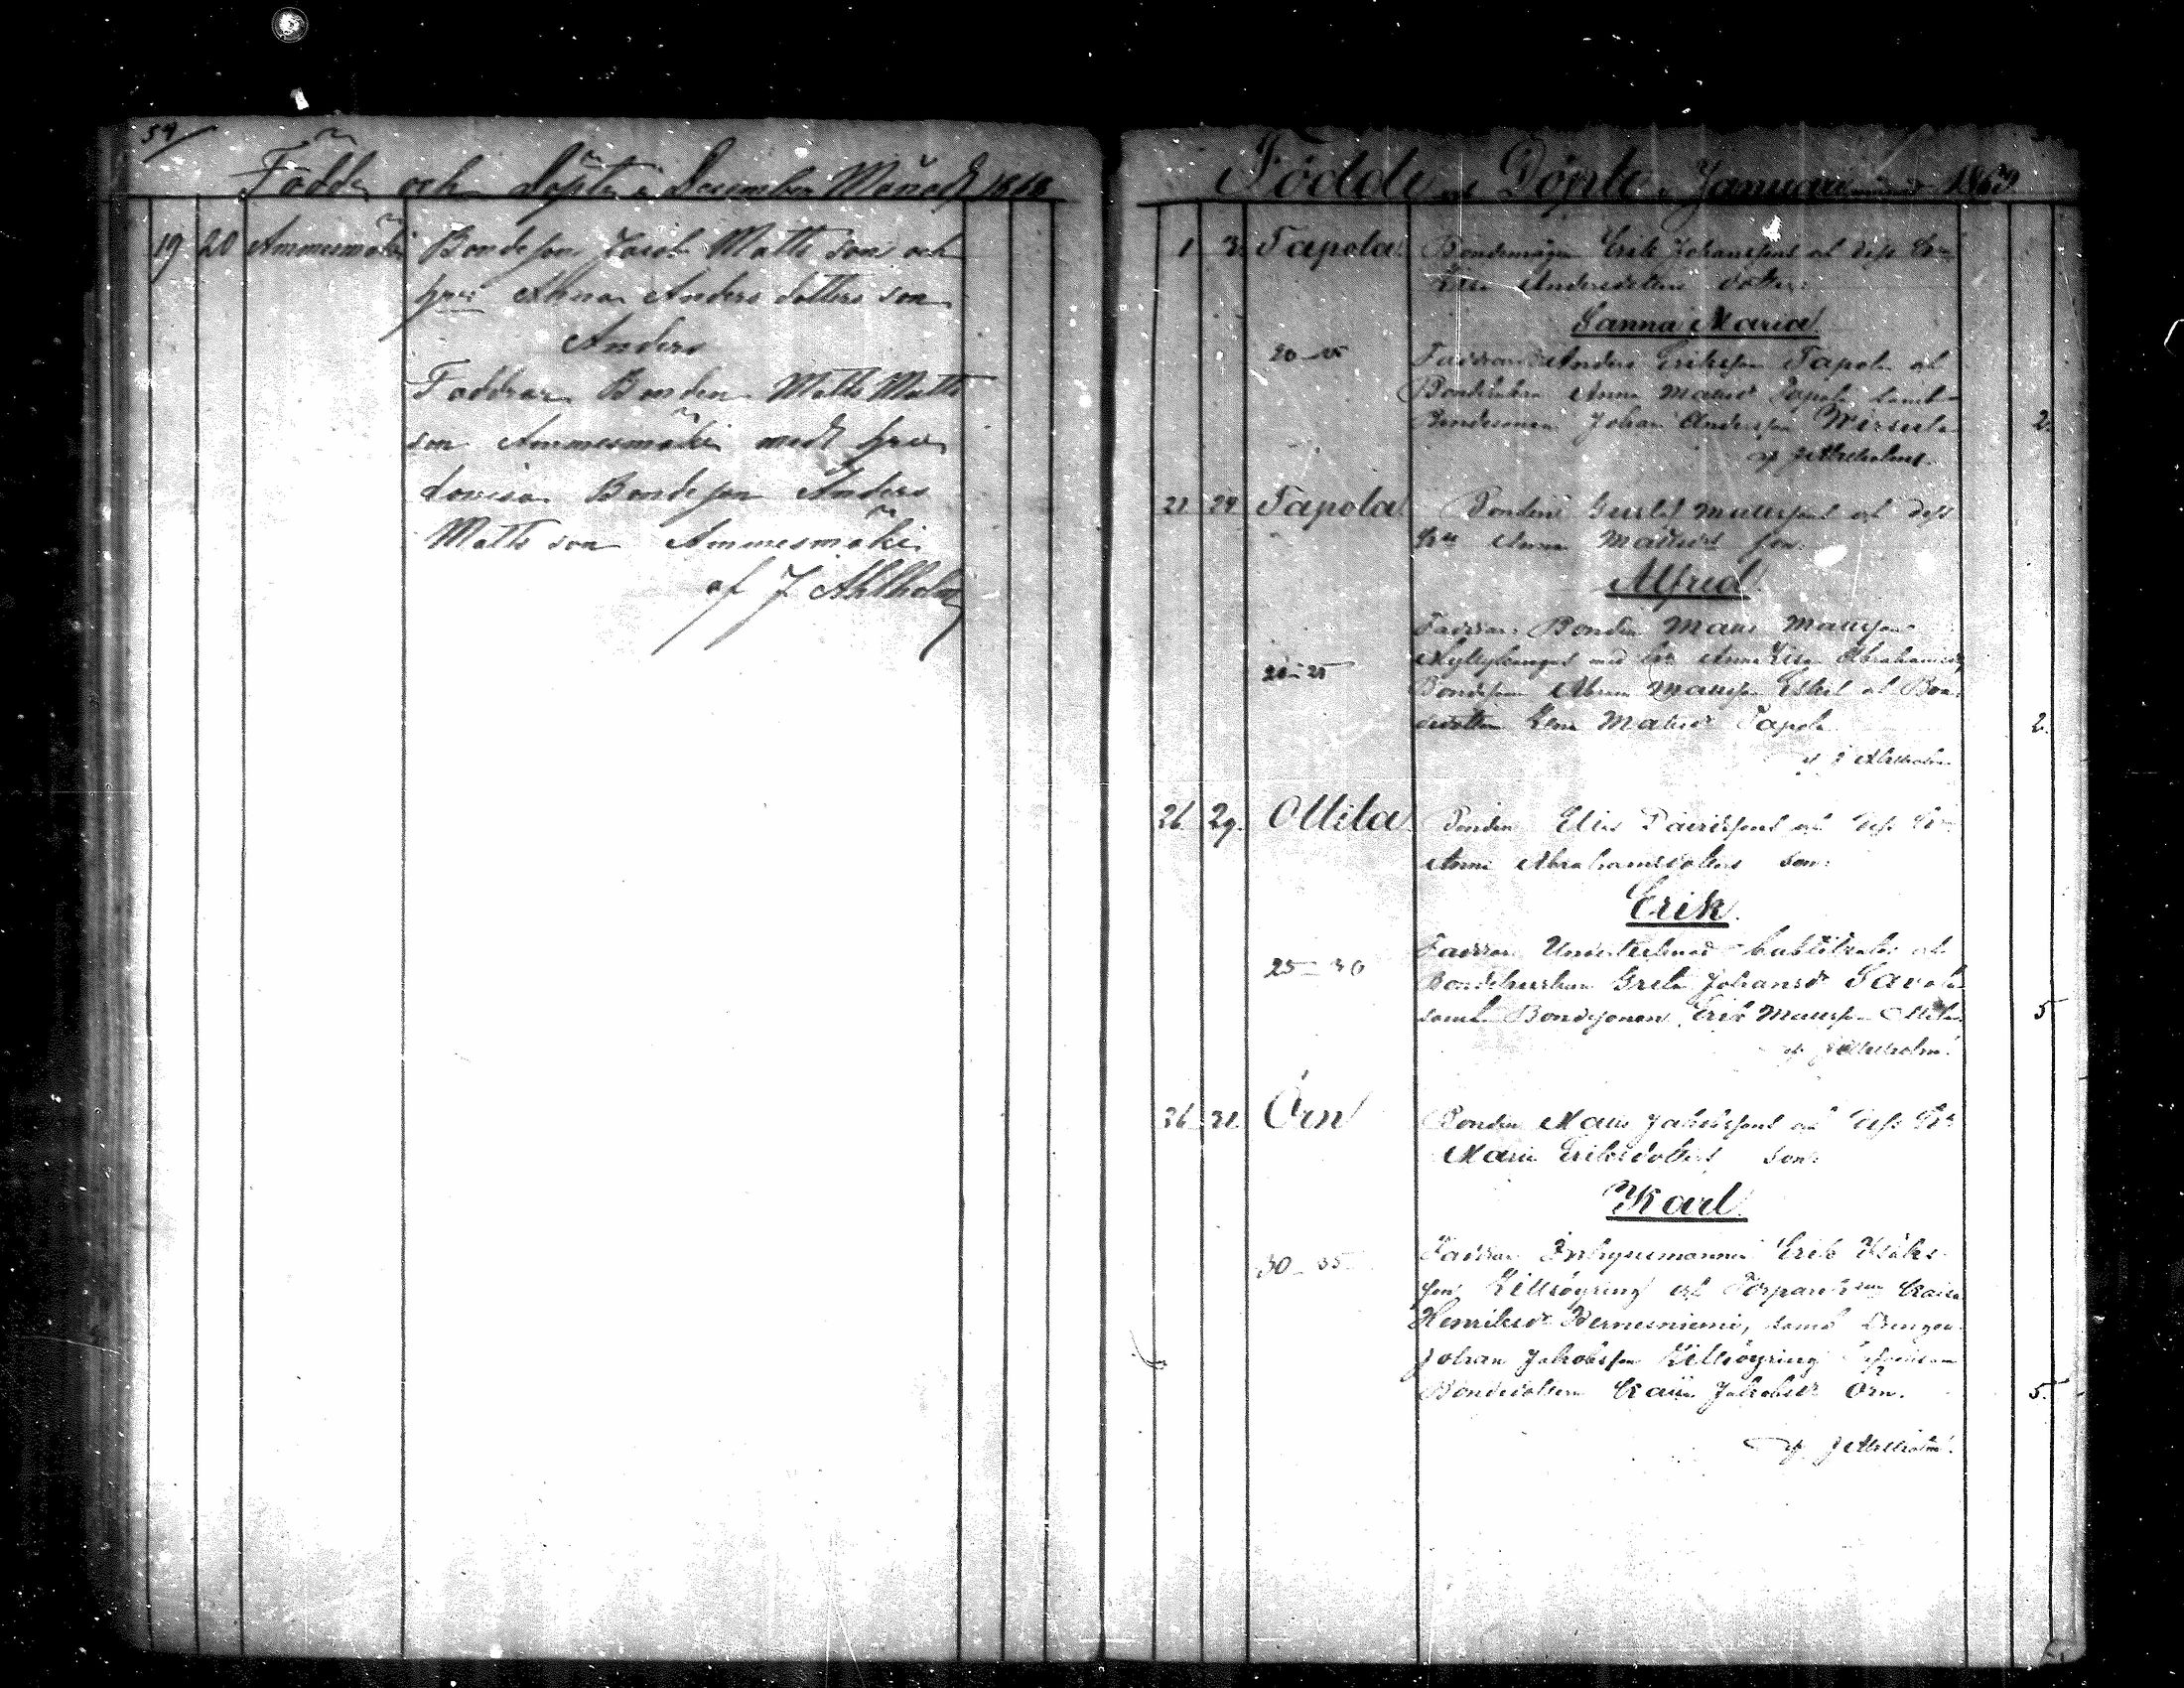 59/
Födde och döpte i December Månad 1868
19 20 Ammesmäki Bondeson Jacob Matts son och
hru Anna Anders dotters son
Anders
Faddrar Bonden Matts Matts
son Ammesmäki med hru
Lovisa Bondeson Anders
Matts son Ammesmäki
af J Ahlholm
Födde och Döpte i Januari månad 1869
1 3. Tapola. Bondemågen Erik Johanssons och dess Hu
Andersdotters dotter:
Sanna Maria.
20–25 Faddrar: Anders Eriksson Tapola och
Bondehustrun Anna Matsdr Tapola samt
Bondesonen Johan Andersson 2.
af J Ahlholm.
21 24 Tapola. Bonden Gustaf Mattssons och dess
Hu Anna Matsdr son:
Alfred.
Faddrar: Bonden Matts Mattsson
med hu Anna Lisa Abrahamsdr,
20–25
Bondeson Abram Mattsson Eskel och Bon-
dedottern Lena Matsdr Tapola. 2.
af J Ahlholm
26 29. Ollila. Bonden Elias Davidssons och dess Hu
Anna Abrahamsdotters son:
Erik.
Faddrar: Undertecknad och
25–30 Bondehustrun Greta Johansdr Savola
samt Bondesonen Erik Mattsson Ollila. 5
af J Ahlholm.
26 31 Örn Bonden Matts Jakobssons och dess Hu
Maria Eriksdotters son:
Karl.
30–35 Faddrar: Inhysesmannen Erik
son Killröyring och Torpareh Kaisa
Henriksdr samt Drengen
Johan Jakobsson Killröyring
Bondedottern Kaisa Jakobsdr Örn. 5.
af J Ahlholm.